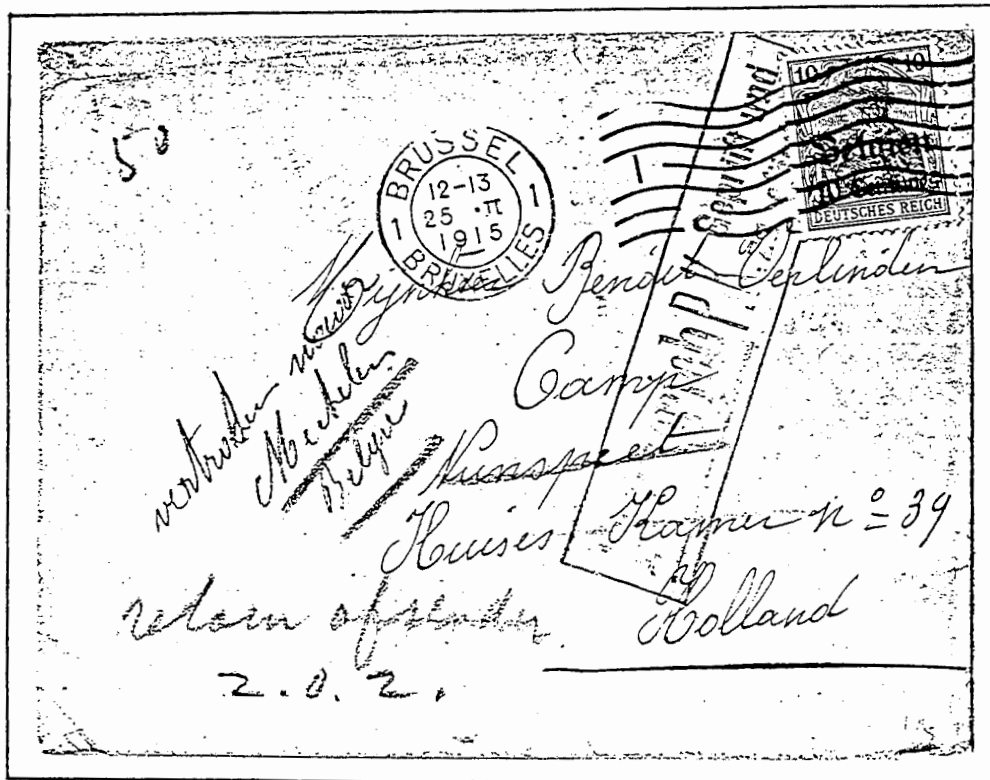 50
BRUSSEL
12-13
25 II
1915
1 1
BRUXELLES
10 10
Belgien
10 Centimes
DEUTSCHES REICH
Benoit Verlinden
Camp
Nunspeet
Huises Kamer nº 39
Holland
vertrokken naar
Mechelen
Belgie
retour afzender